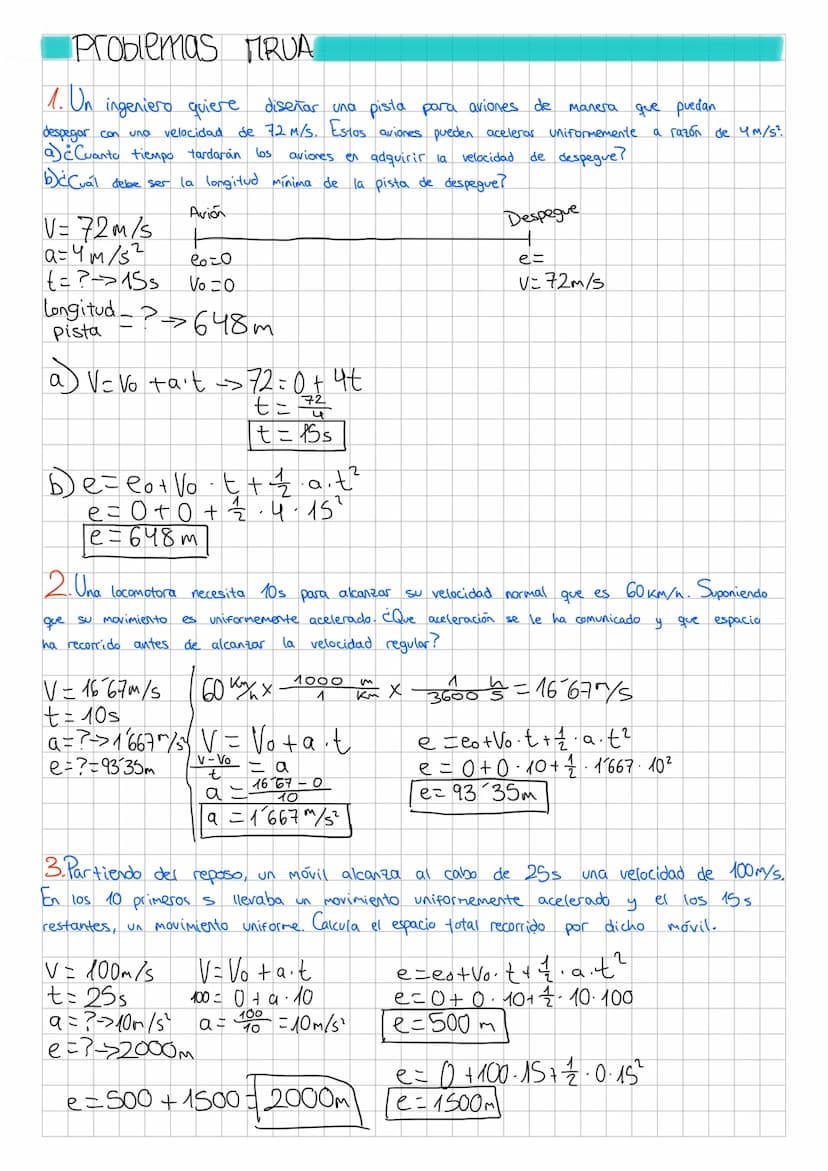 Problemas MRUA
1. Un ingeniero quiere diseñar una pista para aviones de manera que puedan
despegar con una velocidad de 72 M/s. Estos aviones pueden acelerar uniformemente a razón de 4 M/s².
a) ¿Cuanto tiempo tardarán los aviones en adquirir la velocidad de despegue?
b) ¿Cuál debe ser la longitud mínima de la pista de despegue?
Avión Despegue
V= 72m/s
a=4m/s² e₀=0 e=
t=?->15s V₀=0 V=72m/s
longitud pista =?-> 648m
a) V=V₀ +a·t -> 72=0+4t
t= 72/4
t= 15s
b) e=e₀+V₀·t+1/2·a·t²
e=0+0+1/2·4·15²
e=648m
2. Una locomotora necesita 10s para alcanzar su velocidad normal que es 60Km/h. Suponiendo
que su movimiento es uniformemente acelerado. ¿Que aceleración se le ha comunicado y que espacio
ha recorrido antes de alcanzar la velocidad regular?
V= 16´67m/s 60 Km/h x 1000/1 m/Km x 1/3600 h/s = 16´67m/s
t= 10s
a=?->1´667m/s² V= V₀+a·t e=e₀+V₀·t+1/2·a·t²
e=?=93´35m V-V₀/t = a e=0+0·10+1/2·1´667·10²
a= 16´67-0/10 e=93´35m
a =1´667m/s²
3. Partiendo del reposo, un móvil alcanza al cabo de 25s una velocidad de 100M/s.
En los 10 primeros s llevaba un movimiento uniformemente acelerado y el los 15s
restantes, un movimiento uniforme. Calcula el espacio total recorrido por dicho móvil.
V= 100m/s V=V₀+a·t e=e₀+V₀·t+1/2·a·t²
t= 25s 100=0+a·10 e=0+0·10+1/2·10·100
a=?->10m/s² a= 100/10 =10m/s² e=500m
e=?->2000m
e= 0+100·15+1/2·0·15²
e=500+1500=2000m e=1500m